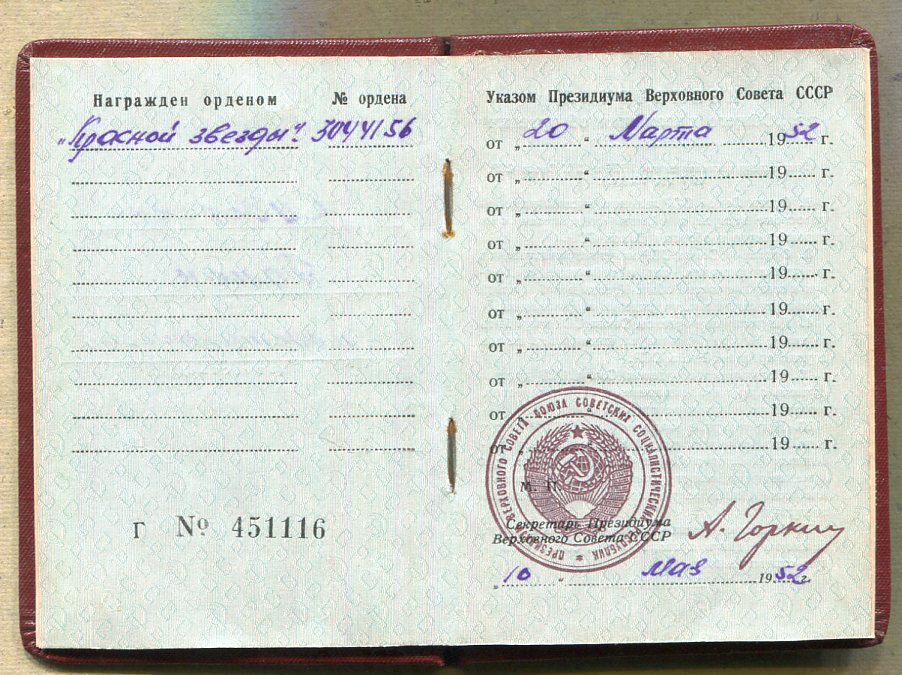 Награжден орденом № ордена
„Красной звезды“. 3044156
Г № 451116
Указом Президиума Верховного Совета СССР
от „ 20 “ Марта 1952 г.
от „ “ 19 г.
от „ “ 19 г.
от „ “ 19 г.
от „ “ 19 г.
от „ “ 19 г.
от „ “ 19 г.
от „ “ 19 г.
от „ “ 19 г.
от „ “ 19 г.
ПРЕЗИДИУМ ВЕРХОВНОГО СОВЕТА СОЮЗА СОВЕТСКИХ СОЦИАЛИСТИЧЕСКИХ РЕСПУБЛИК
М. П.
Секретарь Президиума
Верховного Совета СССР
А. Горкин
„ 10 “ мая 1952 г.